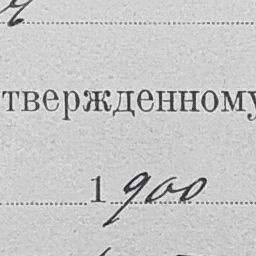 твержденному
1900